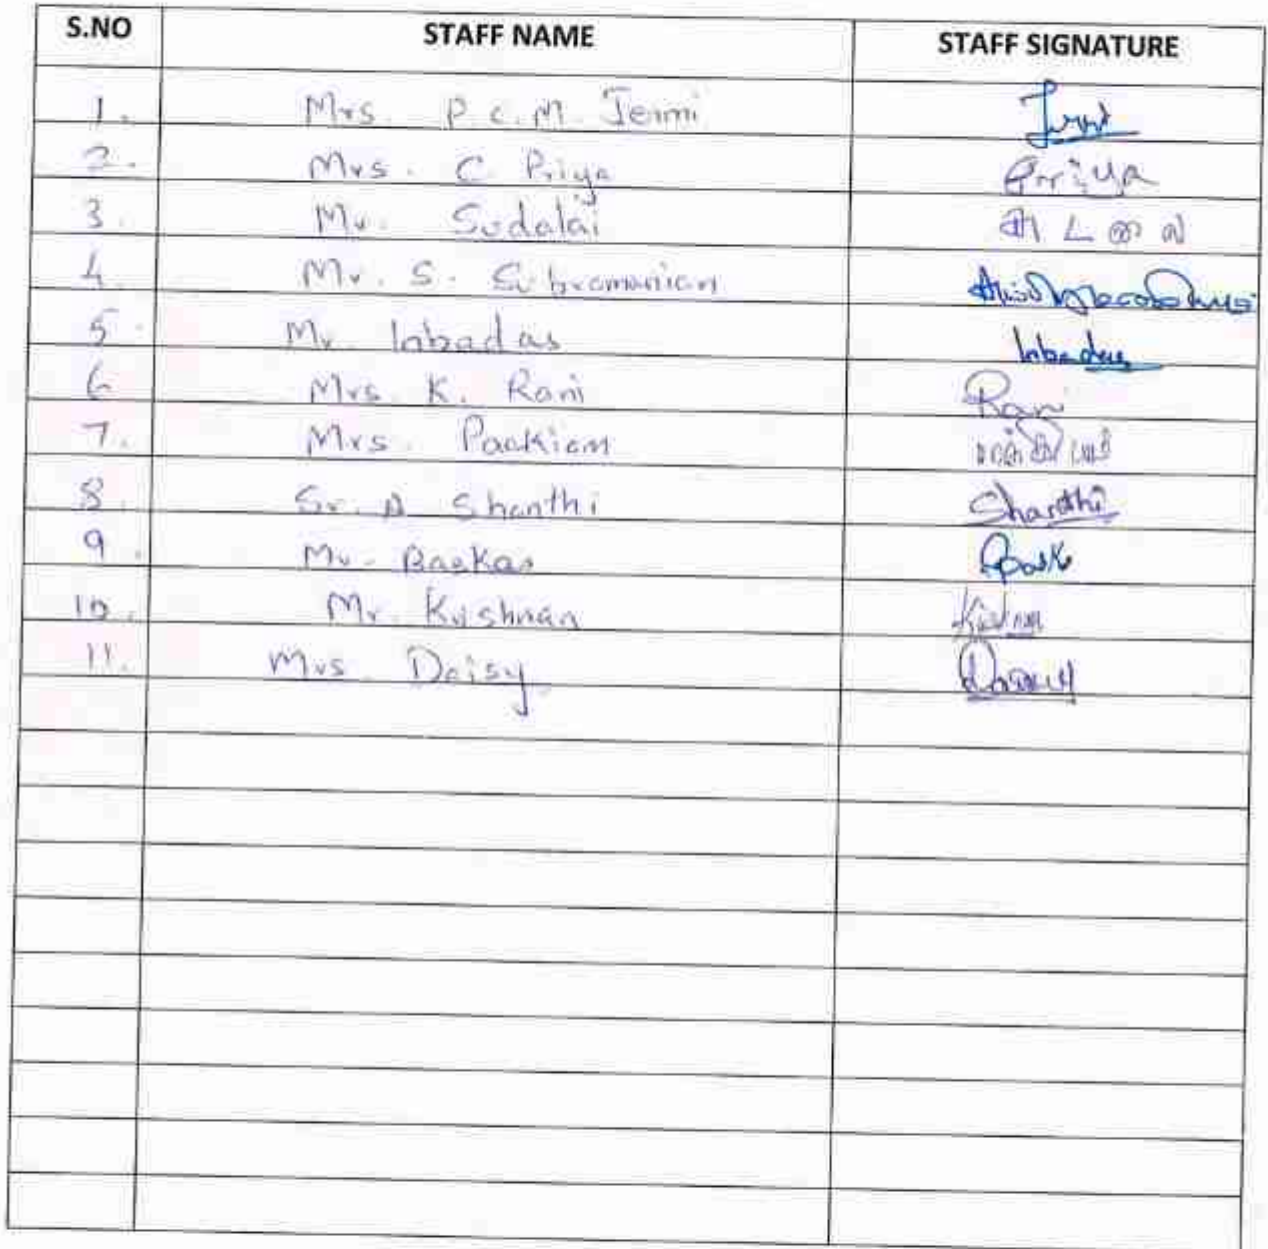 S.NO STAFF NAME STAFF SIGNATURE
1. Mrs. P.C.M. Jenmi
2. Mrs. C. Priya Priya
3. Mr. Sudalai சுடலை
4. Mr. S. Subramanian
5. Mr. Inbadas Inbadas
6 Mrs. K. Rani Rani
7. Mrs. Packiam பாக்கியம்
8. Sr. A Shanthi Shanthi
9. Mr. Baskar
10. Mr. Krishnan
11. Mrs. Daisy